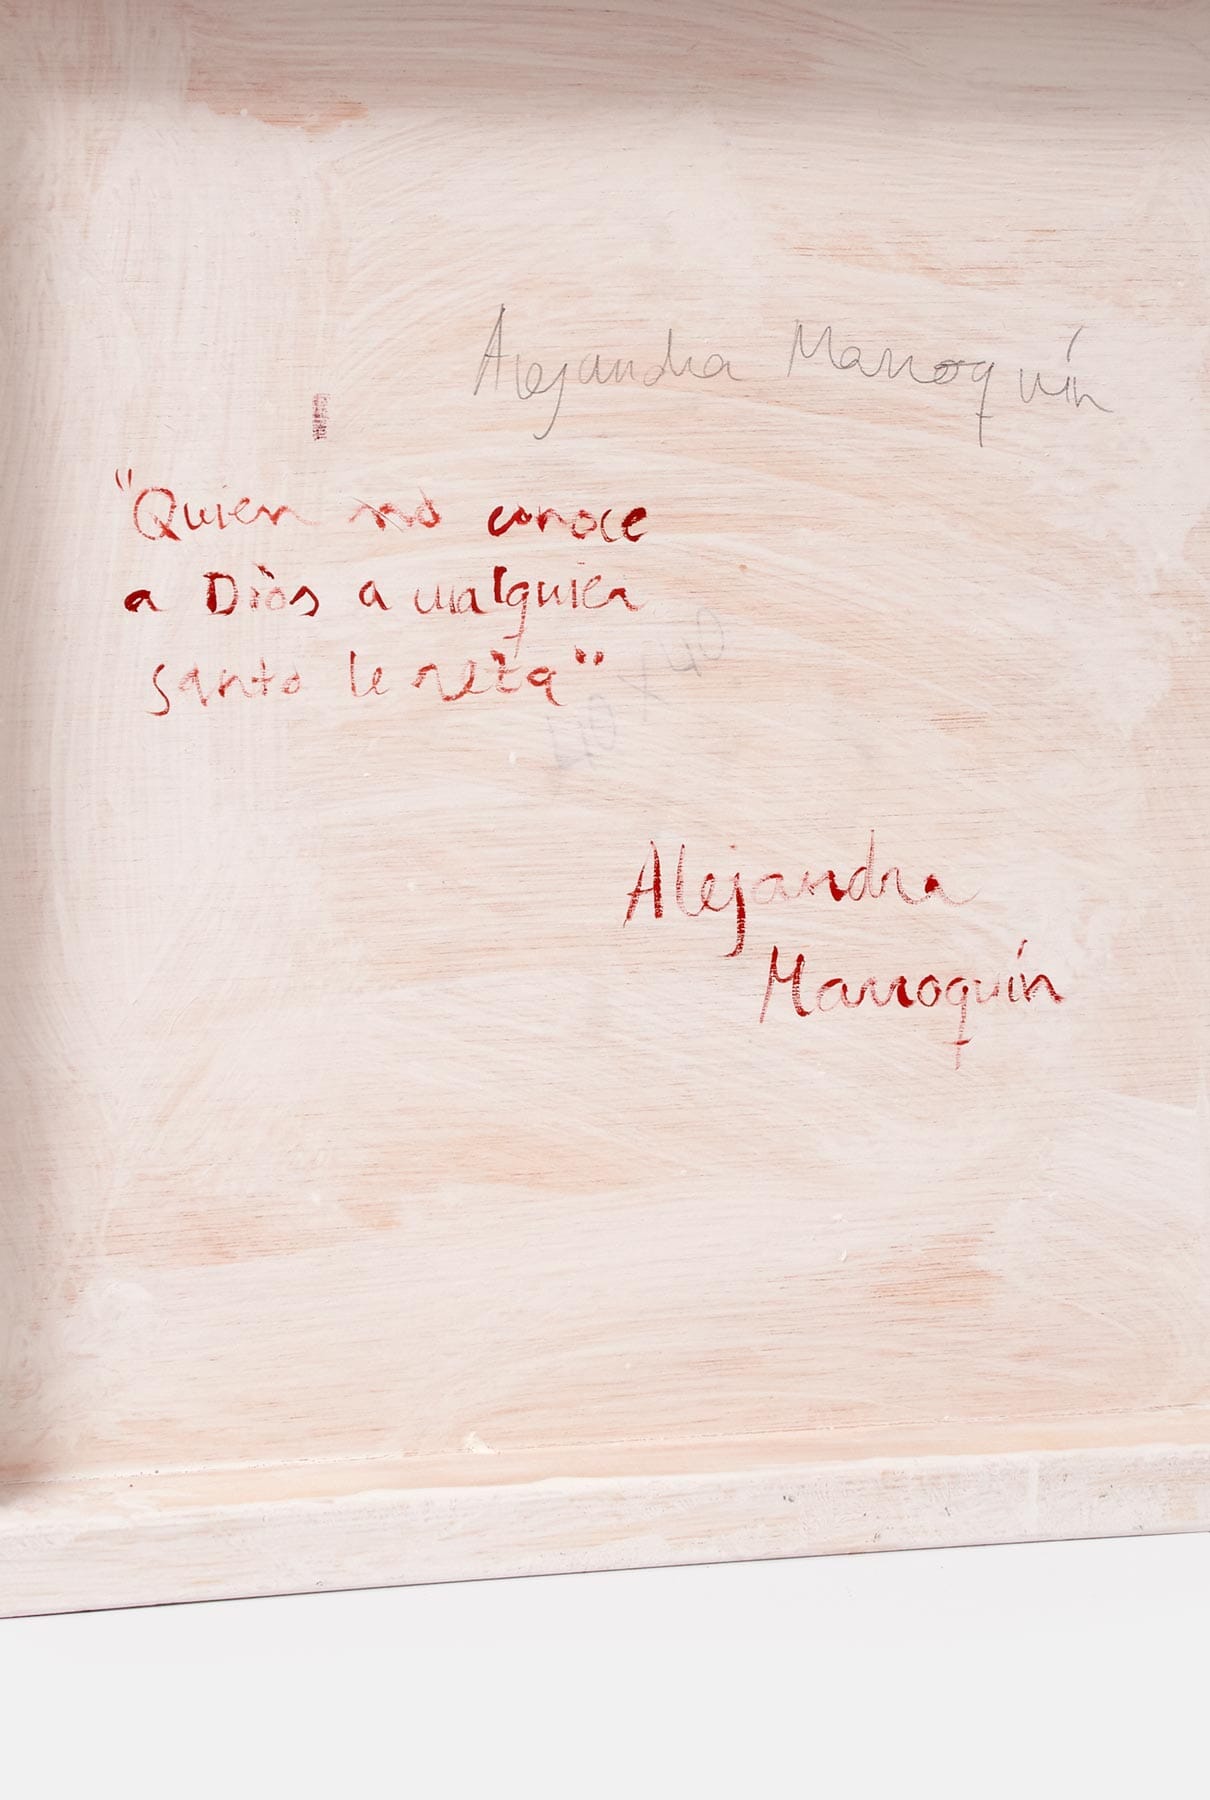 Alejandra Marroquín
"Quien no conoce
a Dios a cualquier
santo le reza"
Alejandra
Marroquín